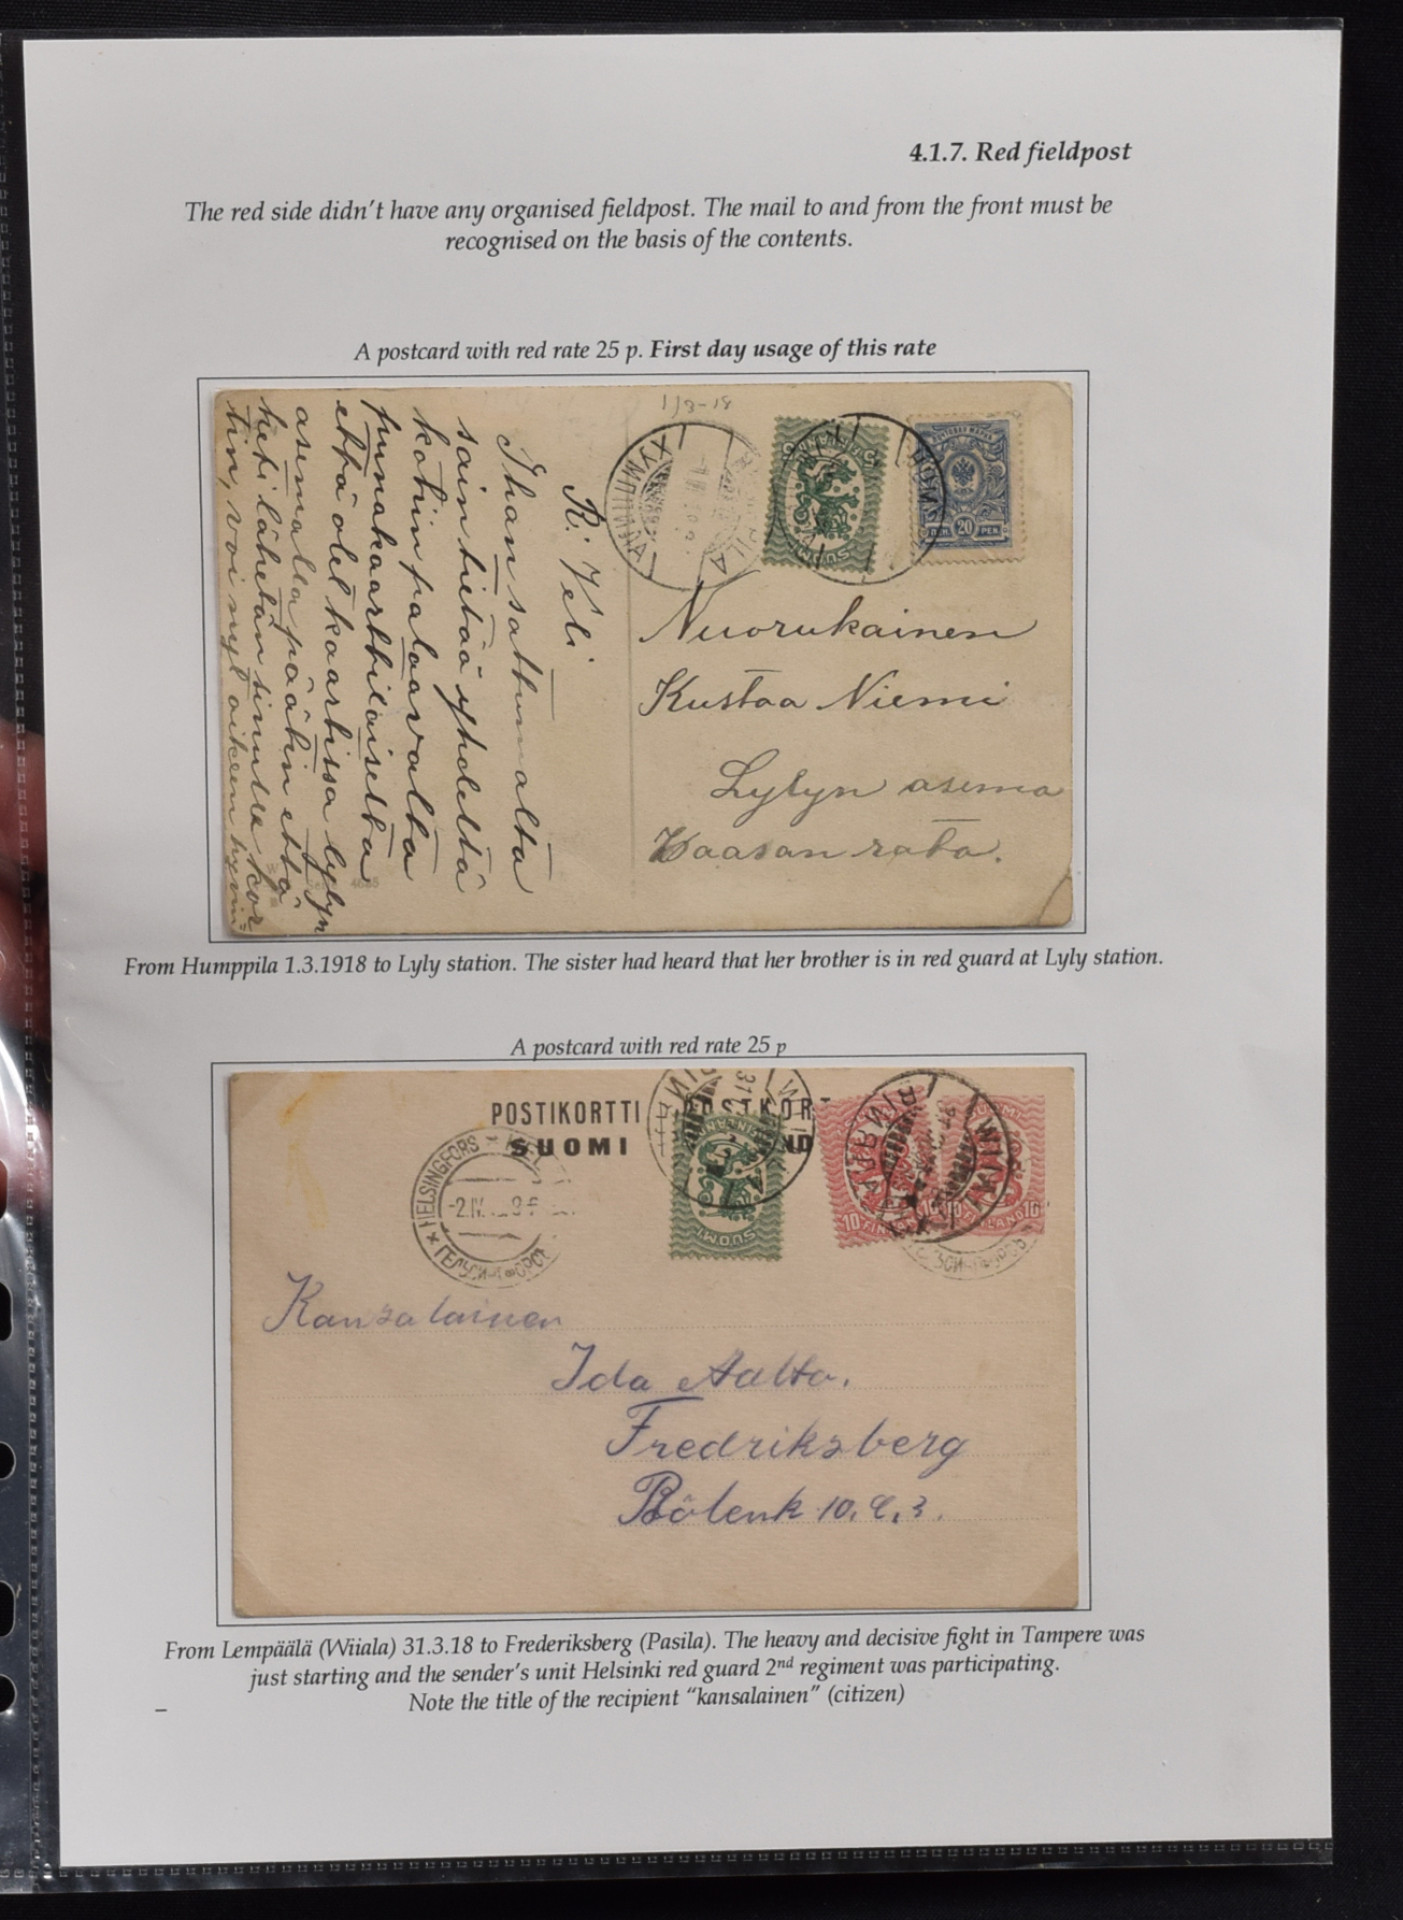 4.1.7. Red fieldpost
The red side didn't have any organised fieldpost. The mail to and from the front must be
recognised on the basis of the contents.
A postcard with red rate 25 p. First day usage of this rate
1/3-18
R: Veli
Ihan sattumalta
sain tietää yhdeltä
kotiin palaavalta
punakaartilaiselta
että olet kaartissa Lylyn
asemalla päätin että
heti lähetän sinulle kor
tin, voi nyt oikein hyvin
ХУМППИЛА
SUOMI
20
Nuorukainen
Kustaa Niemi
Lylyn asema
Waasan rata.
From Humppila 1.3.1918 to Lyly station. The sister had heard that her brother is in red guard at Lyly station.
A postcard with red rate 25 p
POSTIKORTTI POSTKORT
SUOMI ND
HELSINGFORS
-2.IV.
SUOMI
10 10 10
Kansalainen
Ida Aalto.
Fredriksberg
Bölenk 10, 3.
From Lempäälä (Wiiala) 31.3.18 to Frederiksberg (Pasila). The heavy and decisive fight in Tampere was
just starting and the sender's unit Helsinki red guard 2nd regiment was participating.
Note the title of the recipient "kansalainen" (citizen)
–